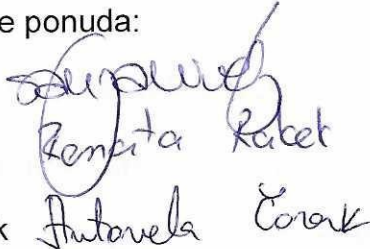 e ponuda:
Renata Racet
k Antonela Čorak